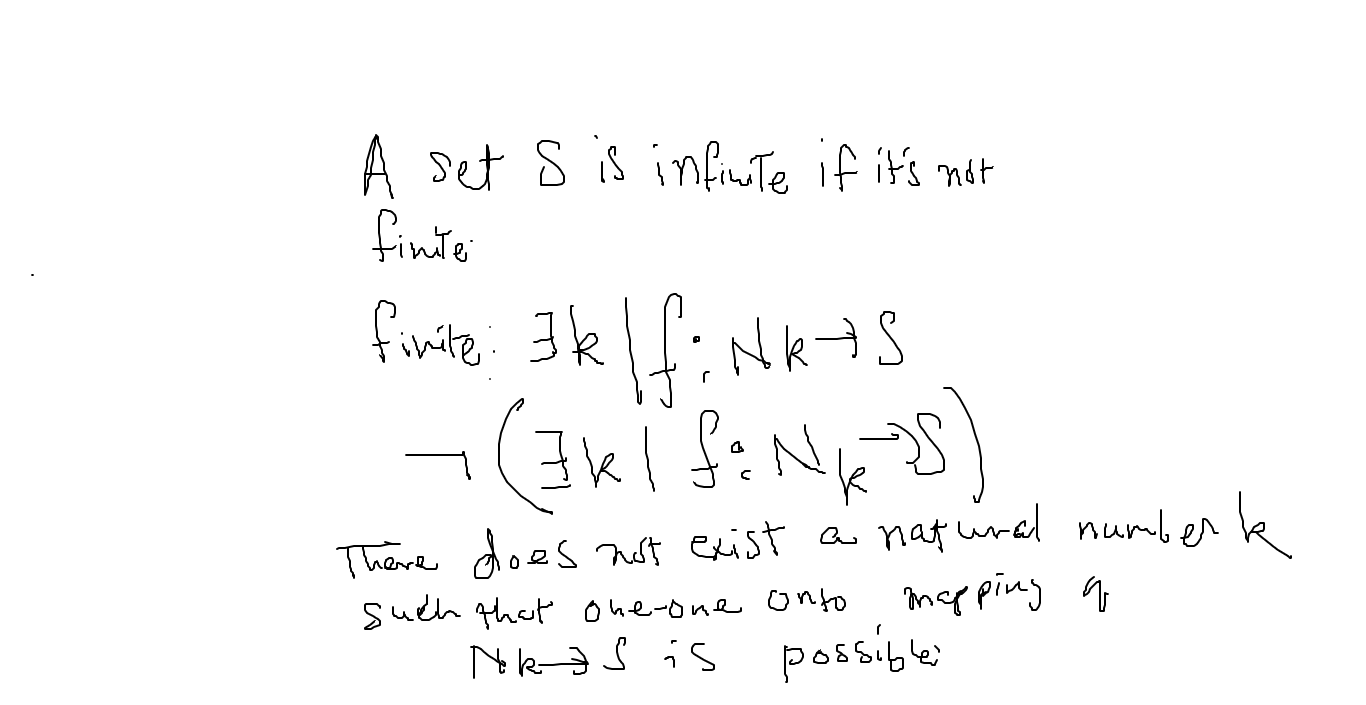 A set S is infinite if it's not
finite.
finite: ∃k | f: Nk → S
¬(∃k | f: Nk → S)
There does not exist a natural number k
such that one-one onto mapping of
Nk → S is possible.